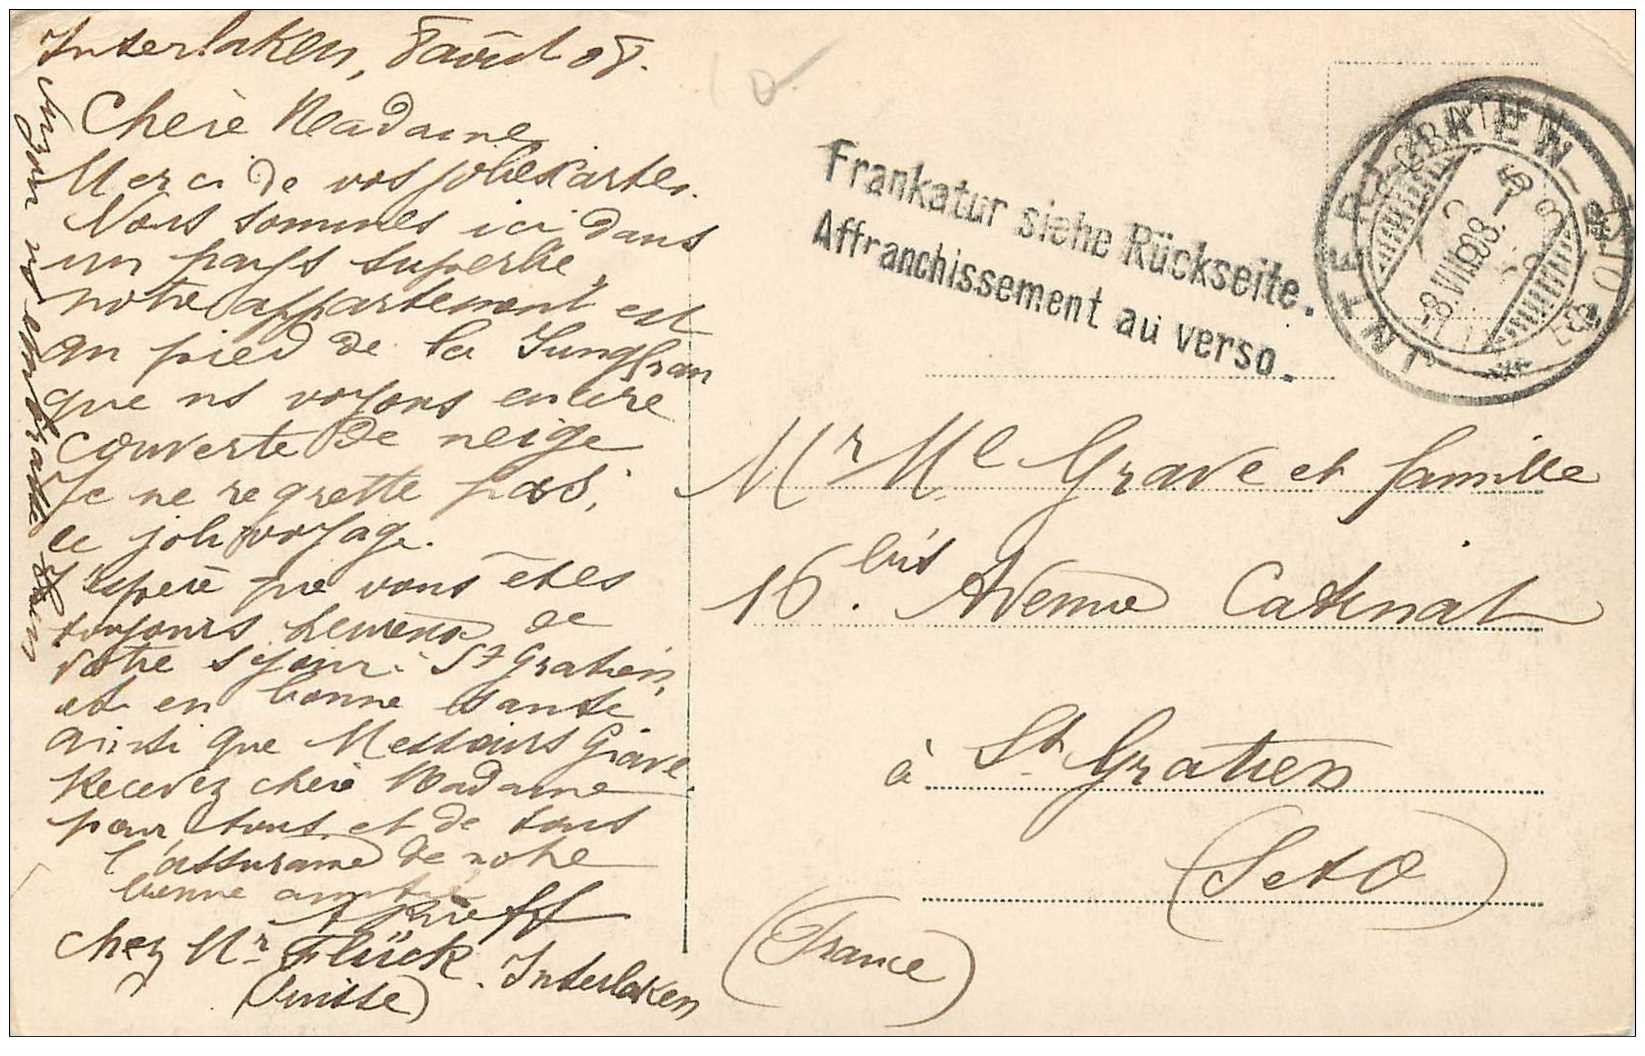 Interlaken, 8 août 08.
Chère Madame
Merci de vos jolies cartes.
Nous sommes ici dans
un pays superbe,
notre appartement est
au pied de la Jungfrau
que ns voyons entière
couverte de neige
Je ne regrette pas
ce joli voyage.
J'espère que vous êtes
toujours heureux de
votre séjour à St Gratien,
et en bonne santé
ainsi que Messieurs Grave.
Recevez chère Madame
pour tous et de tous
l'assurance de notre
bonne amitié
chez Mr Flück. Interlaken
(Suisse)
Suzon vs embrasse bien
Frankatur siehe Rückseite.
Affranchissement au verso.
INTERLAKEN
-8.VIII.08.-
Mr Me Grave et famille
16 bis. Avenue Catinat
à St. Gratien
(Set O)
(France)